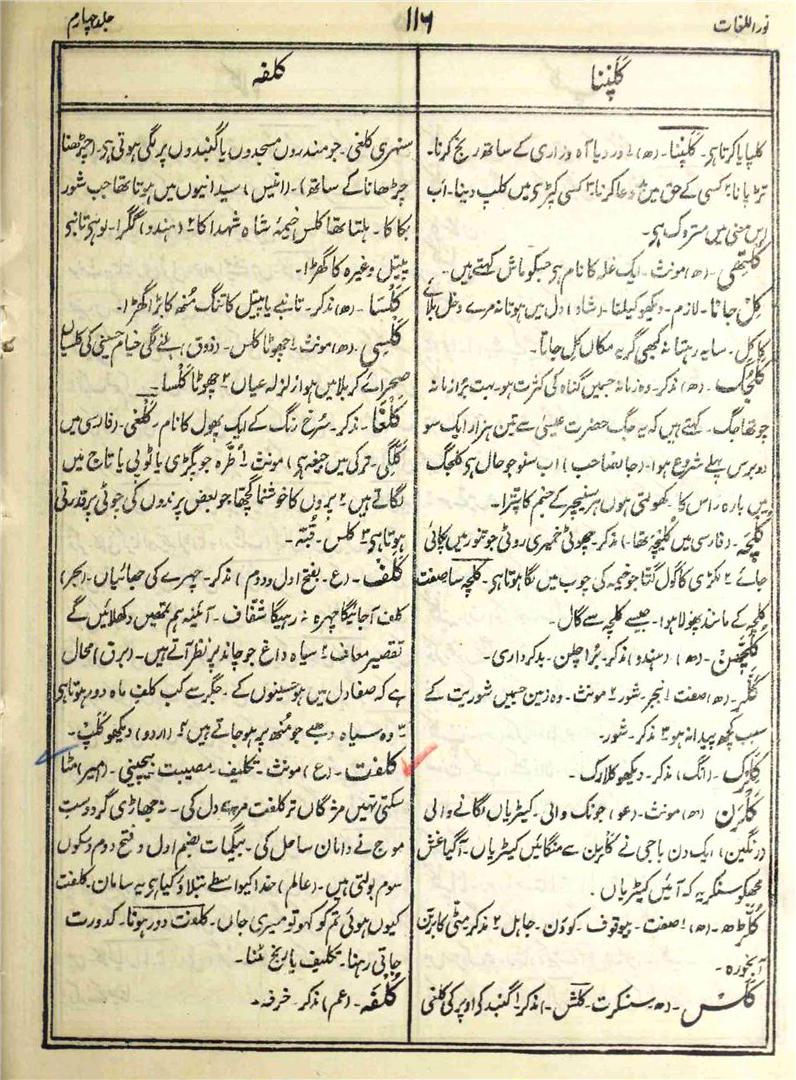 نور اللغات
۱۱۶
جلد چہارم
کَلَپْنا
کلفہ
کلپایا کرتا ہی۔ کَلَپْنا۔ (ھ) ۱ درد یا آہ وزاری کے ساتھ رنج کرنا۔
تڑپانا ۲ کسی کے حق میں دعا کرنا ۳ کسی کپڑی میں کلپ دینا۔ اب
اِس معنی میں متروک ہی۔
کُلْتھی۔ (ھ) مونث۔ ایک غلہ کا نام ہی جسکو ماش کہتے ہیں۔
کِل جانا۔ لازم۔ دیکھو کیلنا۔ (شاد) دل میں ہوتا نہ مرے دخل بلائے
کاکل۔ سایہ رہتا نہ کبھی گر یہ مکاں کِل جاتا۔
کَلْجُگ۔ (ھ) مذکر۔ وہ زمانہ جسمیں گناہ کی کثرت ہو۔ بہت بُرا زمانہ
چوتھا جگ۔ کہتے ہیں کہ یہ جگ حضرت عیسیٰ سے تین ہزار ایک سو
دو برس پہلے شروع ہوا۔ (جانصاحب) اب سنو جو حال ہی کلجگ
میں بارہ راس کا۔ کھولتی ہوں ہر سنیچر کے جنم کا پترا۔
کُلْچَہ۔ (فارسی میں کُلیچَہ تھا۔) مذکر۔ چھوٹی خمیری روٹی جو تنور میں پکائی
جائے ۲ لکڑی کا گول گٹا جو خیمہ کی چوب میں لگا ہوتا ہی۔ کلچہ سا صفت
کلچہ کے مانند پھولا ہوا۔ جیسے کلچہ سے گال۔
کُلَچّھن۔ (ھ) (ہندو) مذکر۔ بُرا چلن۔ بدکرداری۔
کَلَّر۔ (ھ) صفت ۱ بنجر۔ شور ۲ مونث۔ وہ زمین جسمیں شوریت کے
سبب کچھ پیدا نہ ہو ۳ مذکر۔ شور۔
کِلَرک۔ (انگ) مذکر۔ دیکھو کلارک۔
کَلَّرَن۔ (ھ) مونث۔ (عو) جونک والی۔ کیڑیاں لگانے والی
(رنگین) ایک دن باجی نے کلرن سے منگائیں کیڑیاں۔ آگیا غش
مجھکو سنکر یہ کہ آئیں کیڑیاں۔
کُلّڑھ۔ (ھ) ۱ صفت۔ بیوقوف۔ کودَن۔ جاہل ۲ مذکر مٹّی کا برتن
آبخورہ۔
کَلَس۔ (ھ۔ سنسکرت۔ کلَش۔) مذکر ۱ گنبد کی اوپر کی کلغی
سنہری کلغی۔ جو مندروں مسجدوں یا گنبدوں پر لگی ہوتی ہی۔ (چڑھنا
چڑھانا کے ساتھ) (انیس) سیدانیوں میں ہوتا تھا جب شور
بکا کا۔ ہلتا تھا کلس خیمۂ شاہ شہدا کا ۲ (ہندو) گگرا۔ لوہی تانبی
پیتل وغیرہ کا گھڑا۔
کَلْسا۔ (ھ) مذکر۔ تانبے یا پیتل کا تنگ مُنھ کا بڑا گھڑا۔
کَلْسی۔ (ھ) مونث ۱ چھوٹا کلس۔ (ذوق) ہلنے لگی خیام حسینی کی کلسیاں
صحرائے کربلا میں ہوا زلزلہ عیاں ۲ چھوٹا کَلسا۔
کَلْغا۔ مذکر۔ سُرخ رنگ کے ایک پھول کا نام۔ کَلْغی۔ (فارسی میں
کَلَگی۔ ترکی میں جیغہ ہی) مونث ۱ طُرہ جو پگڑی یا ٹوپی یا تاج میں
لگاتے ہیں ۲ پروں کا خوشنما گچھا جو بعض پرندوں کی چوٹی پر قدرتی
ہوتا ہی ۳ کلس۔ قُبّہ۔
کَلَف۔ (ع۔ بفتح اول ودوم) مذکر۔ چہرے کی جھائیاں۔ (بحر)
کلف آجائیگا چہرہ نہ رہیگا شفّاف۔ آئینہ ہم تمھیں دکھلائیں گے
تقصیر معاف ۲ سیاہ داغ جو چاند پر نظر آتے ہیں۔ (برق) محال
ہے کہ صفا دل میں ہو حسینوں کے۔ جگر سے کب کلفِ ماہ دور ہوتا ہی
۳ وہ سیاہ دھبے جو مُنھ پر ہو جاتے ہیں ۴ (اردو) دیکھو کلپ۔
کلفت۔ (ع) مونث۔ تکلیف۔ مصیبت۔ بیچینی۔ (امیر) مٹا
سکتی نہیں مژگاں تر کلفت مرے دل کی۔ نہ جھاڑی گرد دست
موج نے دامان ساحل کی۔ بیگمات بضم اول و فتح دوم و سکون
سوم بولتی ہیں۔ (عالم) خدا کیواسطے بتلاؤ کیا ہی یہ سامان۔ کلفت
کیوں ہوئی تم کو کہو تو میری جاں۔ کلفت دور ہونا۔ کدورت
جاتی رہنا۔ تکلیف یا رنج مٹنا۔
کُلْفَہ۔ (عم) مذکر۔ خرفہ۔